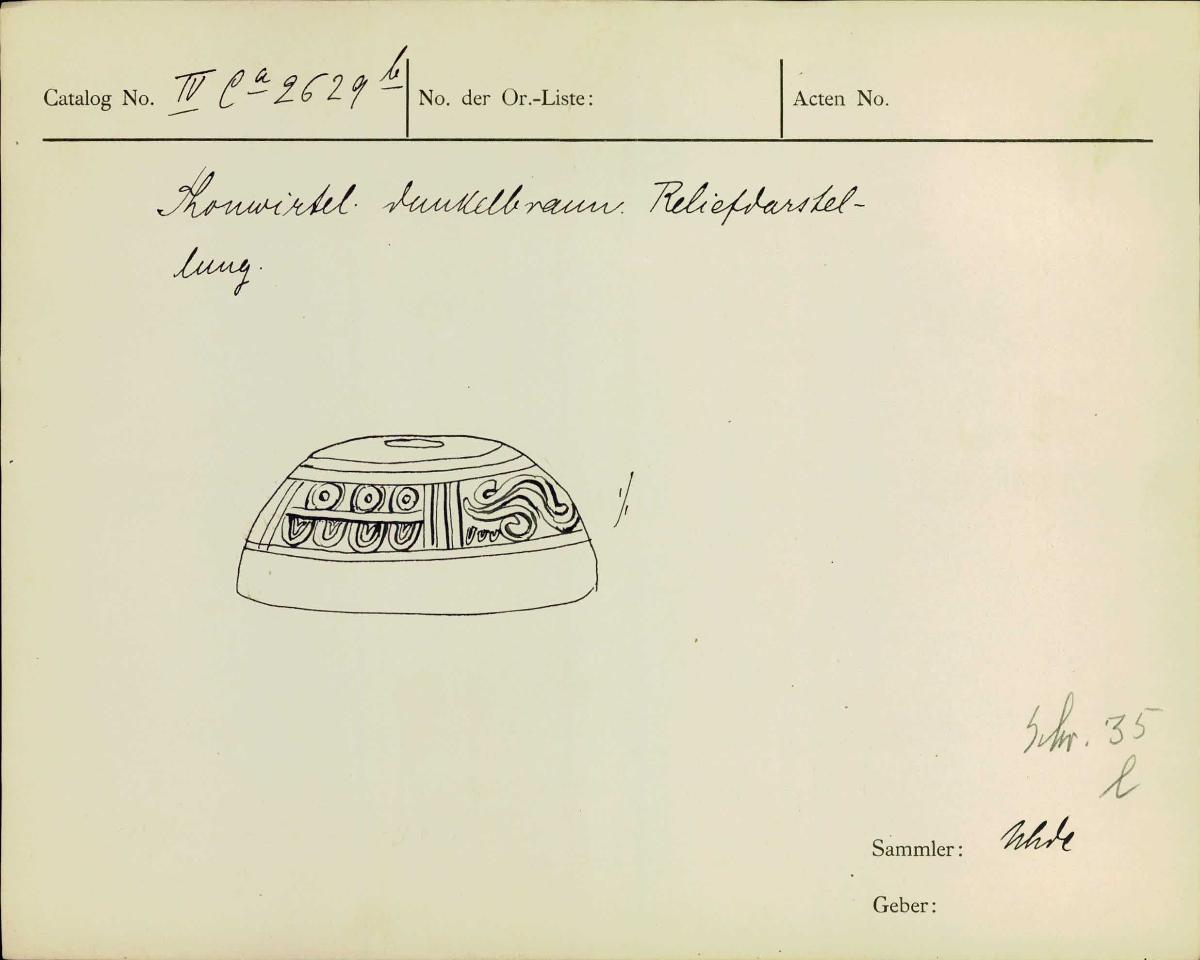 Catalog No. IV Ca 2629 b No. der Or.-Liste: Acten No.
Thonwirtel. dunkelbraun. Reliefdarstel-
lung.
1/1
Schr. 35
l
Sammler: Uhde
Geber: